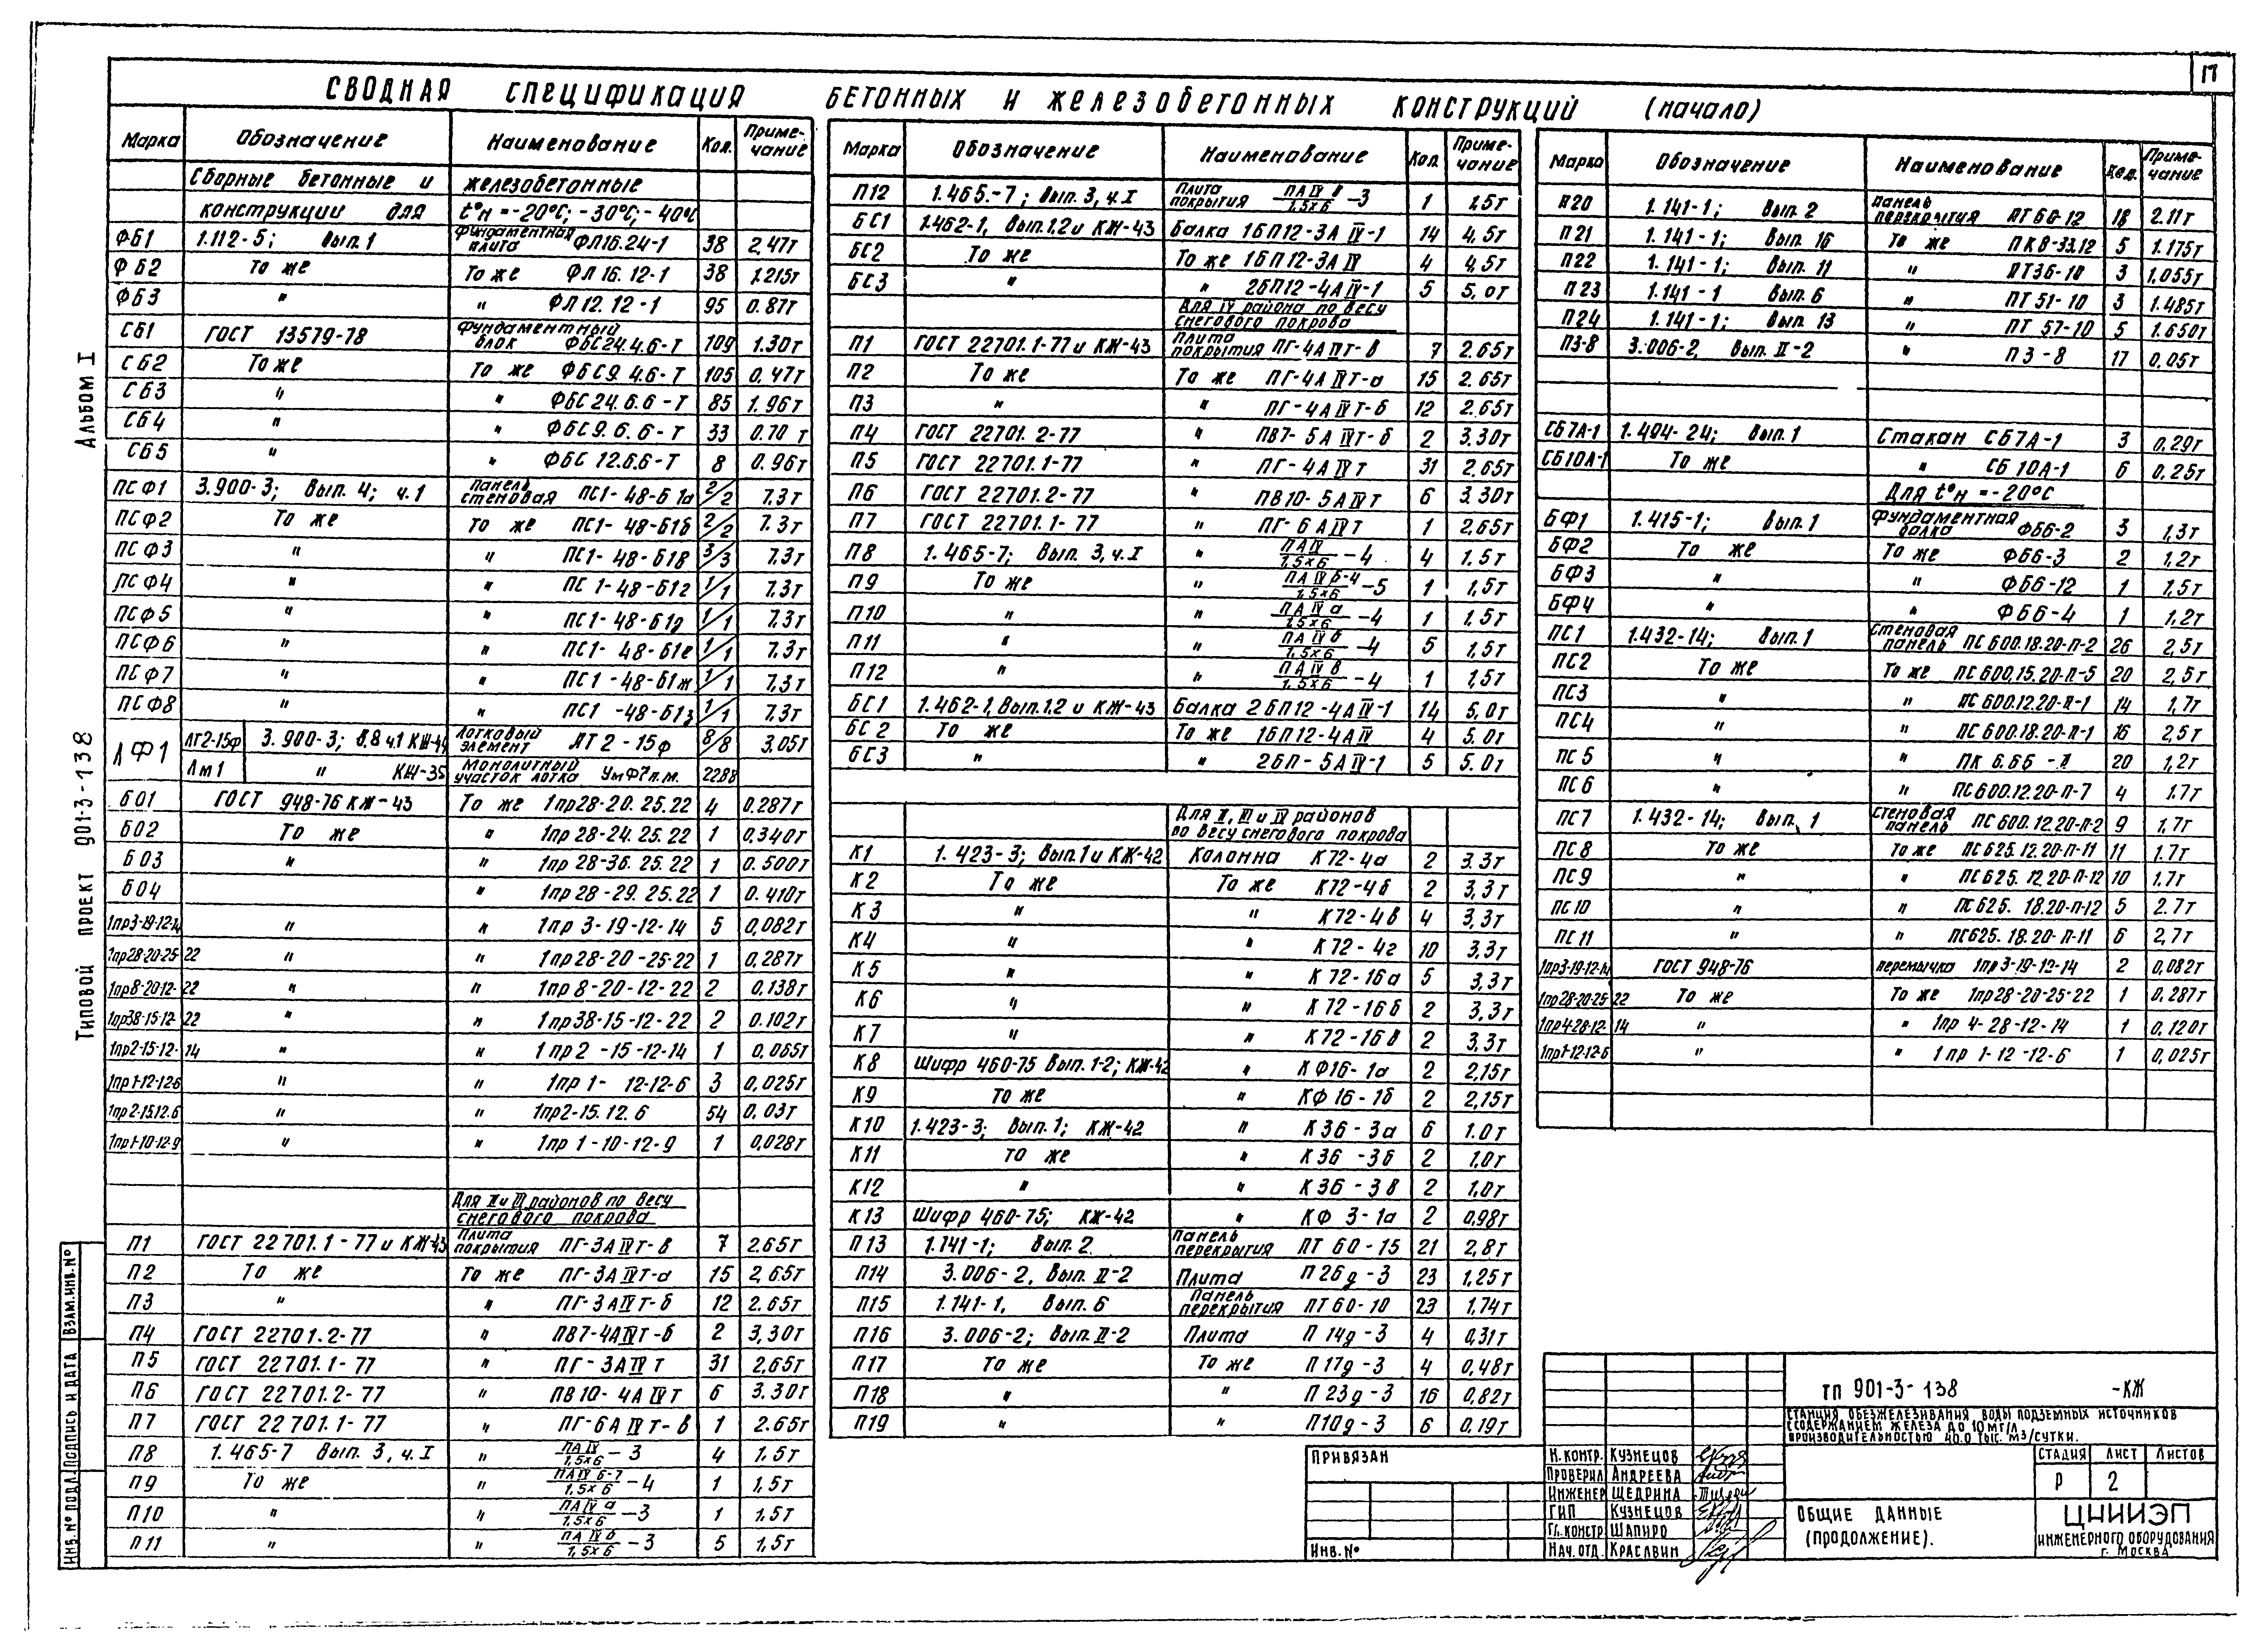 17
СВОДНАЯ СПЕЦИФИКАЦИЯ БЕТОННЫХ И ЖЕЛЕЗОБЕТОННЫХ КОНСТРУКЦИЙ (начало)
Альбом I
Типовой проект 901-3-138
Марка Обозначение Наименование Кол. Приме-чание
Сборные бетонные и железобетонные
конструкции для t°н = -20°С; -30°С; -40°С
ФБ1 1.112-5; Вып. 1 Фундаментная плита ФЛ16.24-1 38 2,47т
ФБ2 То же То же ФЛ16.12-1 38 1.215т
ФБ3 " " ФЛ12.12-1 95 0.87т
СБ1 ГОСТ 13579-78 Фундаментный блок ФБС24.4.6-Т 109 1.30т
СБ2 То же То же ФБС9.4.6-Т 105 0,47т
СБ3 " " ФБС24.6.6-Т 85 1.96т
СБ4 " " ФБС9.6.6-Т 33 0.70т
СБ5 " " ФБС12.6.6-Т 8 0.96т
ПСФ1 3.900-3; Вып. 4; ч.1 Панель стеновая ПС1-48-Б1а 2/2 7.3т
ПСФ2 То же То же ПС1-48-Б1б 2/2 7.3т
ПСФ3 " " ПС1-48-Б1в 3/3 7.3т
ПСФ4 " " ПС1-48-Б1г 1/1 7.3т
ПСФ5 " " ПС1-48-Б1д 1/1 7.3т
ПСФ6 " " ПС1-48-Б1е 1/1 7.3т
ПСФ7 " " ПС1-48-Б1ж 1/1 7.3т
ПСФ8 " " ПС1-48-Б1з 1/1 7.3т
ЛФ1 ЛТ2-15ф 3.900-3; В.8 ч.1 КЖ-44 Лотковый элемент ЛТ2-15ф 8/8 3.05т
Лм1 " КЖ-35 Монолитный участок лотка УмФ7п.м. 22.88
Б01 ГОСТ 948-76 КЖ-43 То же 1пр28-20.25.22 4 0.287т
Б02 То же " 1пр28-24.25.22 1 0,340т
Б03 " " 1пр28-36.25.22 1 0.500т
Б04 " 1пр28-29.25.22 1 0.410т
1пр3-19-12-14 " " 1пр 3-19-12-14 5 0,082т
1пр28-20-25-22 " " 1пр28-20-25-22 1 0.287т
1пр8-20-12-22 " " 1пр 8-20-12-22 2 0,138т
1пр38-15-12-22 " " 1пр38-15-12-22 2 0.102т
1пр2-15-12-14 " " 1пр2-15-12-14 1 0,065т
1пр1-12-12-6 " " 1пр 1-12-12-6 3 0,025т
1пр2-15.12.6 " " 1пр2-15.12.6 54 0.03т
1пр1-10-12-9 " " 1пр 1-10-12-9 1 0,028т
Для II и III районов по весу
снегового покрова
П1 ГОСТ 22701.1-77 и КЖ-43 Плита покрытия ПГ-3АIVт-в 7 2.65т
П2 То же То же ПГ-3АIVт-а 15 2,65т
П3 " " ПГ-3АIVт-б 12 2.65т
П4 ГОСТ 22701.2-77 " ПВ7-4АIVт-б 2 3,30т
П5 ГОСТ 22701.1-77 " ПГ-3АIVт 31 2,65т
П6 ГОСТ 22701.2-77 " ПВ10-4АIVт 6 3.30т
П7 ГОСТ 22701.1-77 " ПГ-6АIVт-в 1 2.65т
П8 1.465-7 Вып. 3, ч.I " ПАIV/1,5х6-3 4 1,5т
П9 То же " ПАIVб-7/1,5х6-4 1 1,5т
П10 " " ПАIVа/1,5х6-3 1 1,5т
П11 " " ПАIVб/1,5х6-3 5 1,5т
Марка Обозначение Наименование Кол. Приме-чание
П12 1.465-7; Вып. 3, ч.I Плита покрытия ПАIVв/1,5х6-3 1 1,5т
БС1 1.462-1, Вып.1.2 и КЖ-43 Балка 1БП12-3АIV-1 14 4,5т
БС2 То же То же 1БП12-3АIV 4 4,5т
БС3 " " 2БП12-4АIV-1 5 5,0т
Для IV района по весу
снегового покрова
П1 ГОСТ 22701.1-77 и КЖ-43 Плита покрытия ПГ-4АIVт-в 7 2.65т
П2 То же То же ПГ-4АIVт-а 15 2.65т
П3 " " ПГ-4АIVт-б 12 2.65т
П4 ГОСТ 22701.2-77 " ПВ7-5АIVт-б 2 3,30т
П5 ГОСТ 22701.1-77 " ПГ-4АIVт 31 2,65т
П6 ГОСТ 22701.2-77 " ПВ10-5АIVт 6 3.30т
П7 ГОСТ 22701.1-77 " ПГ-6АIVт 1 2,65т
П8 1.465-7; Вып. 3, ч.I " ПАIV/1,5х6-4 4 1,5т
П9 То же " ПАIVб-4/1,5х6-5 1 1,5т
П10 " " ПАIVа/1,5х6-4 1 1,5т
П11 " " ПАIVб/1,5х6-4 5 1,5т
П12 " " ПАIVв/1,5х6-4 1 1,5т
БС1 1.462-1, Вып.1.2 и КЖ-43 Балка 2БП12-4АIV-1 14 5,0т
БС2 То же То же 1БП12-4АIV 4 5.0т
БС3 " " 2БП-5АIV-1 5 5.0т
Для II, III и IV районов
по весу снегового покрова
К1 1.423-3; Вып.1 и КЖ-42 Колонна К72-4а 2 3.3т
К2 То же То же К72-4б 2 3,3т
К3 " " К72-4в 4 3,3т
К4 " " К72-4г 10 3,3т
К5 " " К72-16а 5 3,3т
К6 " " К72-16б 2 3,3т
К7 " " К72-16в 2 3,3т
К8 Шифр 460-75 Вып.1-2; КЖ-42 " КФ16-1а 2 2,15т
К9 То же " КФ16-1б 2 2,15т
К10 1.423-3; Вып.1; КЖ-42 " К36-3а 6 1.0т
К11 То же " К36-3б 2 1,0т
К12 " " К36-3в 2 1,0т
К13 Шифр 460-75; КЖ-42 " КФ 3-1а 2 0,98т
П13 1.141-1; Вып. 2. Панель перекрытия ПТ 60-15 21 2,8т
П14 3.006-2, Вып. II-2 Плита П26д-3 23 1,25т
П15 1.141-1, Вып. 6 Панель перекрытия ПТ60-10 23 1,74т
П16 3.006-2; Вып. II-2 Плита П14д-3 4 0,31т
П17 То же То же П17д-3 4 0,48т
П18 " " П23д-3 16 0,82т
П19 " " П10д-3 6 0,19т
Марка Обозначение Наименование Кол. Приме-чание
П20 1.141-1; Вып. 2 Панель перекрытия ПТ60-12 18 2.11т
П21 1.141-1; Вып. 16 То же ПК8-33.12 5 1.175т
П22 1.141-1; Вып. 11 " ПТ36-10 3 1,055т
П23 1.141-1 Вып. 6 " ПТ51-10 3 1.485т
П24 1.141-1; Вып. 13 " ПТ 57-10 5 1.650т
П3-8 3.006-2, Вып. II-2 " П3-8 17 0,05т
СБ7А-1 1.494-24; Вып. 1 Стакан СБ7А-1 3 0,29т
СБ10А-1 То же " СБ10А-1 6 0,25т
Для t°н = -20°С
БФ1 1.415-1; Вып. 1 Фундаментная балка ФБ6-2 3 1,3т
БФ2 То же То же ФБ6-3 2 1,2т
БФ3 " " ФБ6-12 1 1,5т
БФ4 " " ФБ6-4 1 1,2т
ПС1 1.432-14; Вып. 1 Стеновая панель ПС600.18.20-П-2 26 2,5т
ПС2 То же То же ПС600.15.20-П-5 20 2,5т
ПС3 " " ПС600.12.20-П-1 14 1,7т
ПС4 " " ПС600.18.20-П-1 16 2,5т
ПС5 " " ПК 6.66-П 20 1,2т
ПС6 " " ПС600.12.20-П-7 4 1.7т
ПС7 1.432-14; Вып. 1 Стеновая панель ПС600.12.20-П-2 9 1,7т
ПС8 То же То же ПС625.12.20-П-11 11 1.7т
ПС9 " " ПС625.12.20-П-12 10 1,7т
ПС10 " " ПС625.18.20-П-12 5 2.7т
ПС11 " " ПС625.18.20-П-11 6 2,7т
1пр3-19-12-14 ГОСТ 948-76 перемычка 1пр3-19-12-14 2 0,082т
1пр28-20-25-22 То же То же 1пр28-20-25-22 1 0,287т
1пр4-28-12-14 " " 1пр 4-28-12-14 1 0,120т
1пр1-12-12-6 " " 1пр 1-12-12-6 1 0,025т
Взам.инв.№
Подпись и дата
Инв.№ подл.
Привязан
Инв.№
Н.контр. Кузнецов
Проверил Андреева
Инженер Щедрина
ГИП Кузнецов
Гл.констр Шапиро
Нач.отд. Красавин
ТП 901-3-138 -КЖ
Станция обезжелезивания воды подземных источников
с содержанием железа до 10 мг/л
производительностью 40.0 тыс. м3/сутки.
Стадия Лист Листов
Р 2
Общие данные
(продолжение).
ЦНИИЭП
инженерного оборудования
г. Москва